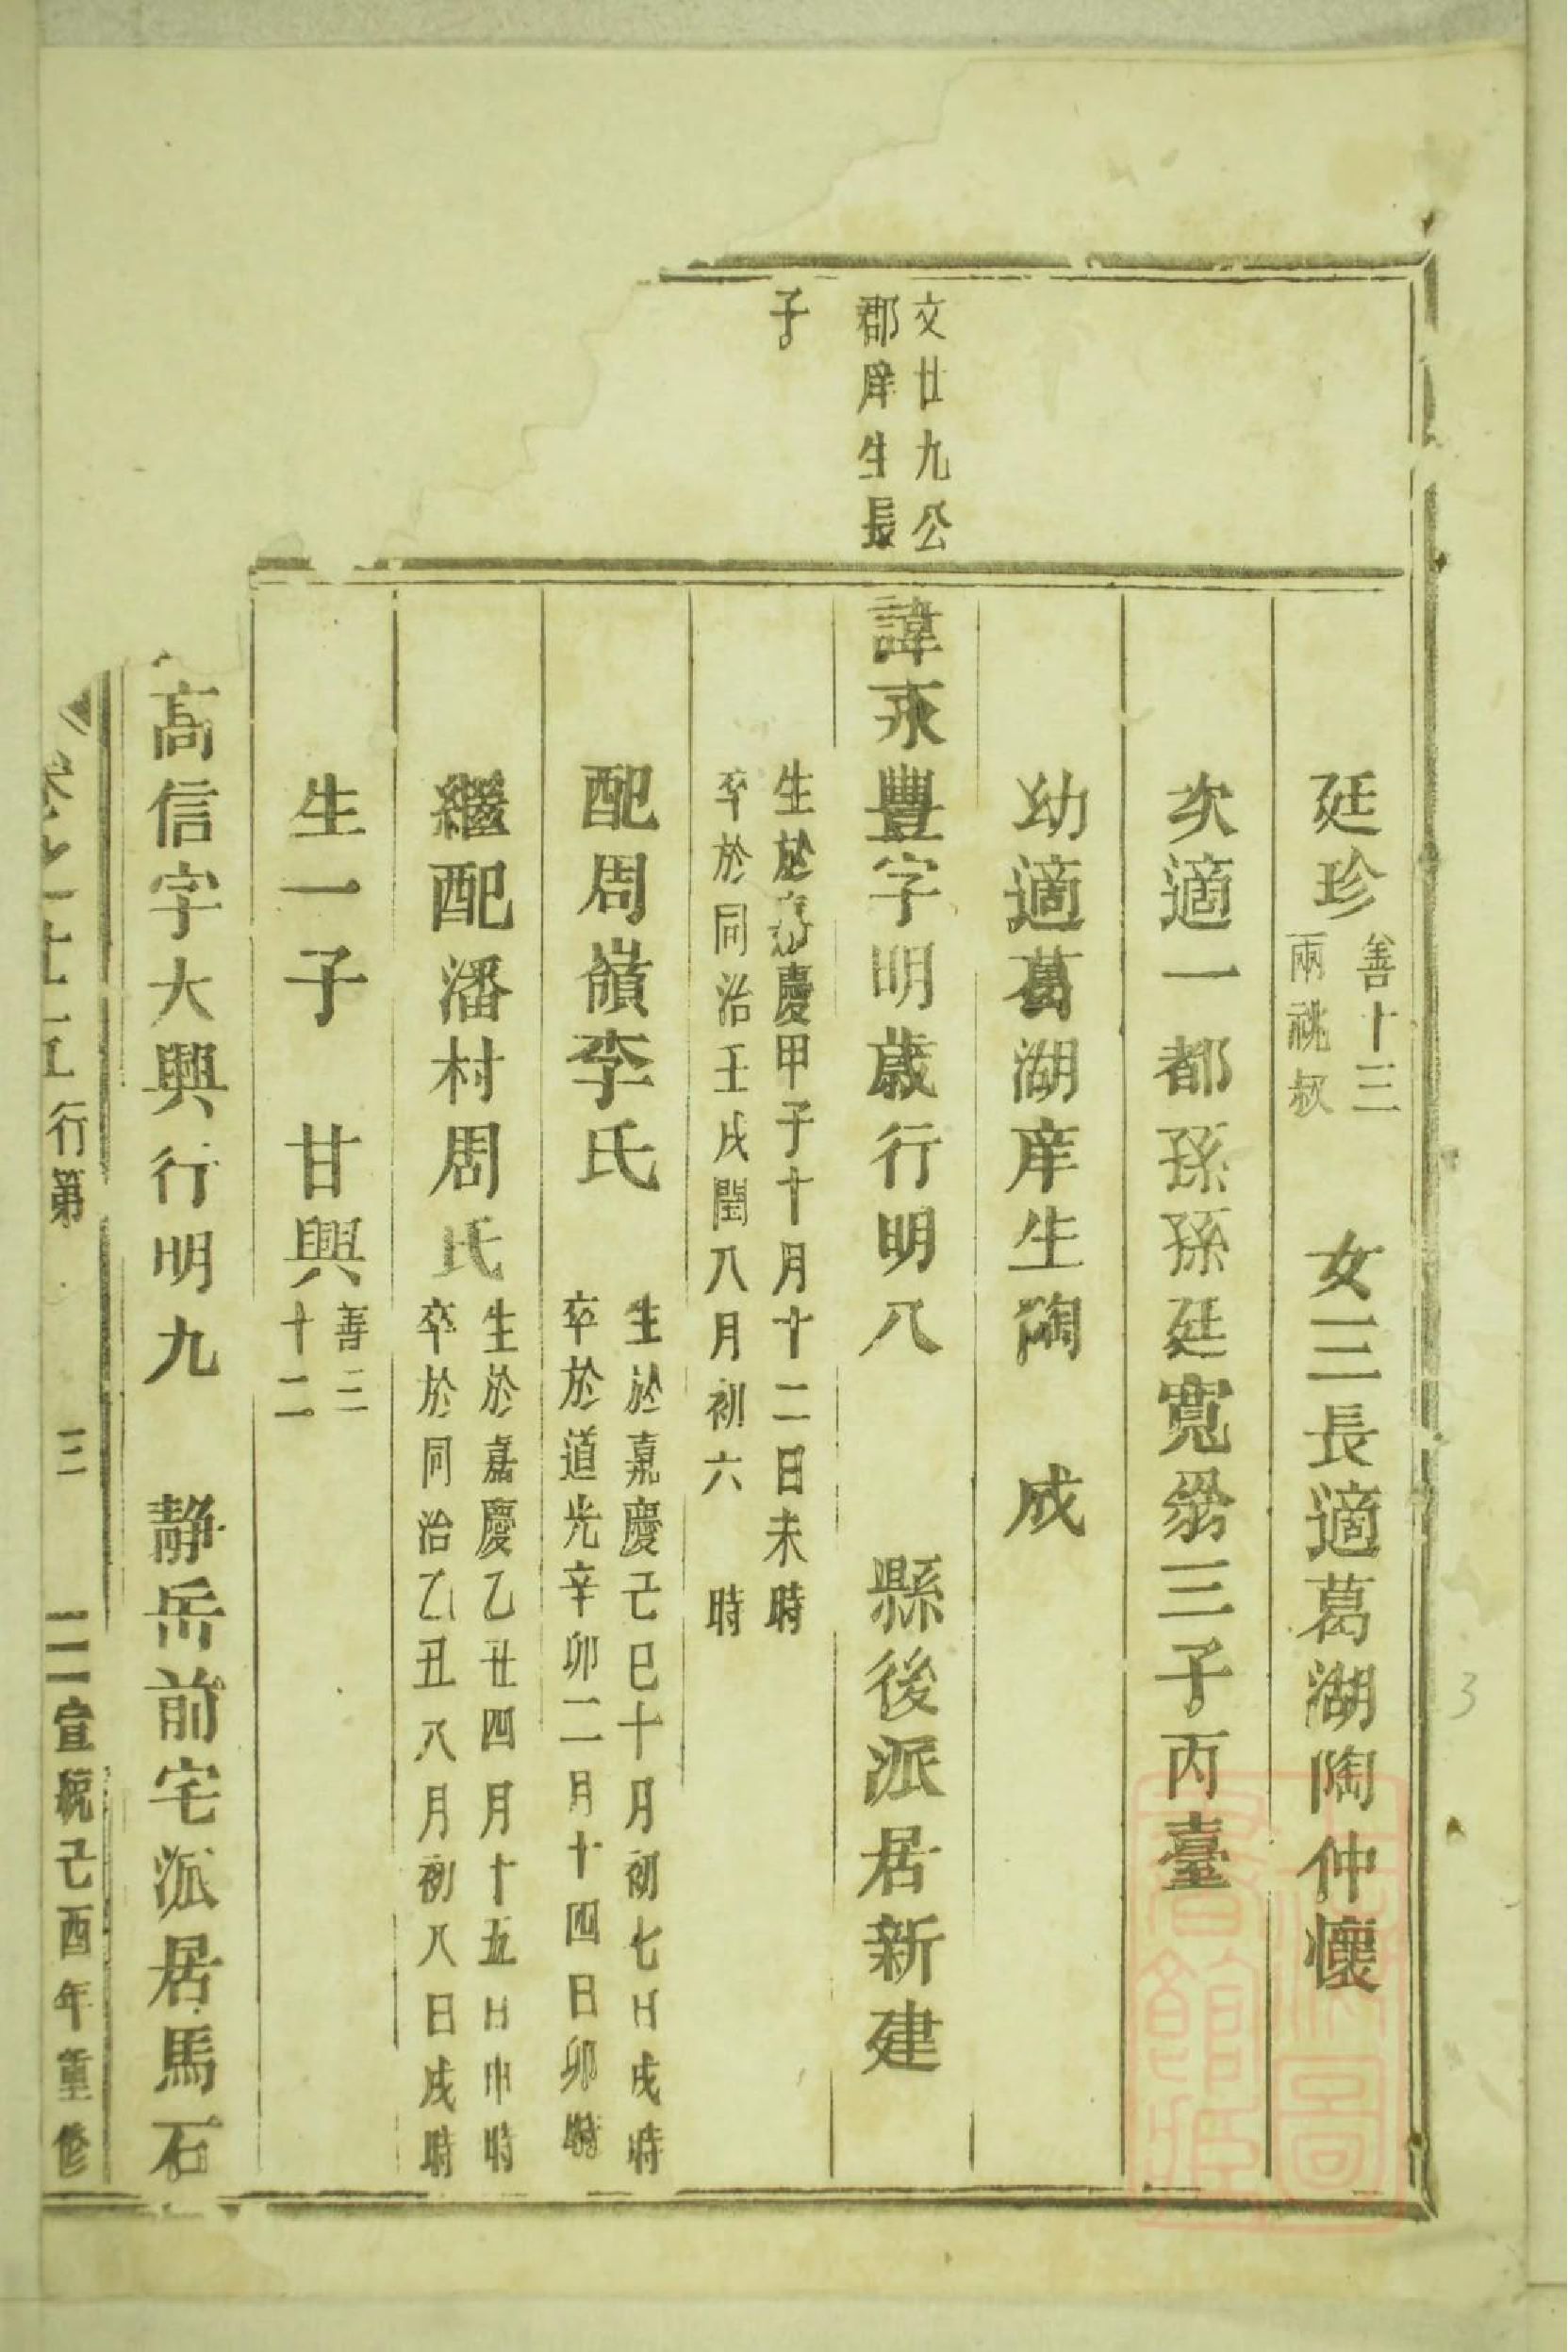 廷珍
善十三
兩祧叔
女三長適葛湖陶仲懷
次適一都孫孫廷寬
三子丙臺
幼適葛湖庠生陶 成
文廿九公
郡庠生長
子
諱永豐字明歲行明八 縣後派居新建
生於嘉慶甲子十月十二日未時
卒於同治壬戌閏八月初六 時
配周嶺李氏
生於嘉慶己巳十月初七日戌時
卒於道光辛卯二月十四日卯時
繼配潘村周氏
生於嘉慶乙丑四月十五日申時
卒於同治乙丑八月初八日戌時
生一子 甘興
善三
十二
高信字大興行明九 靜岳前宅派居馬石
行第 三
宣統己酉年重修